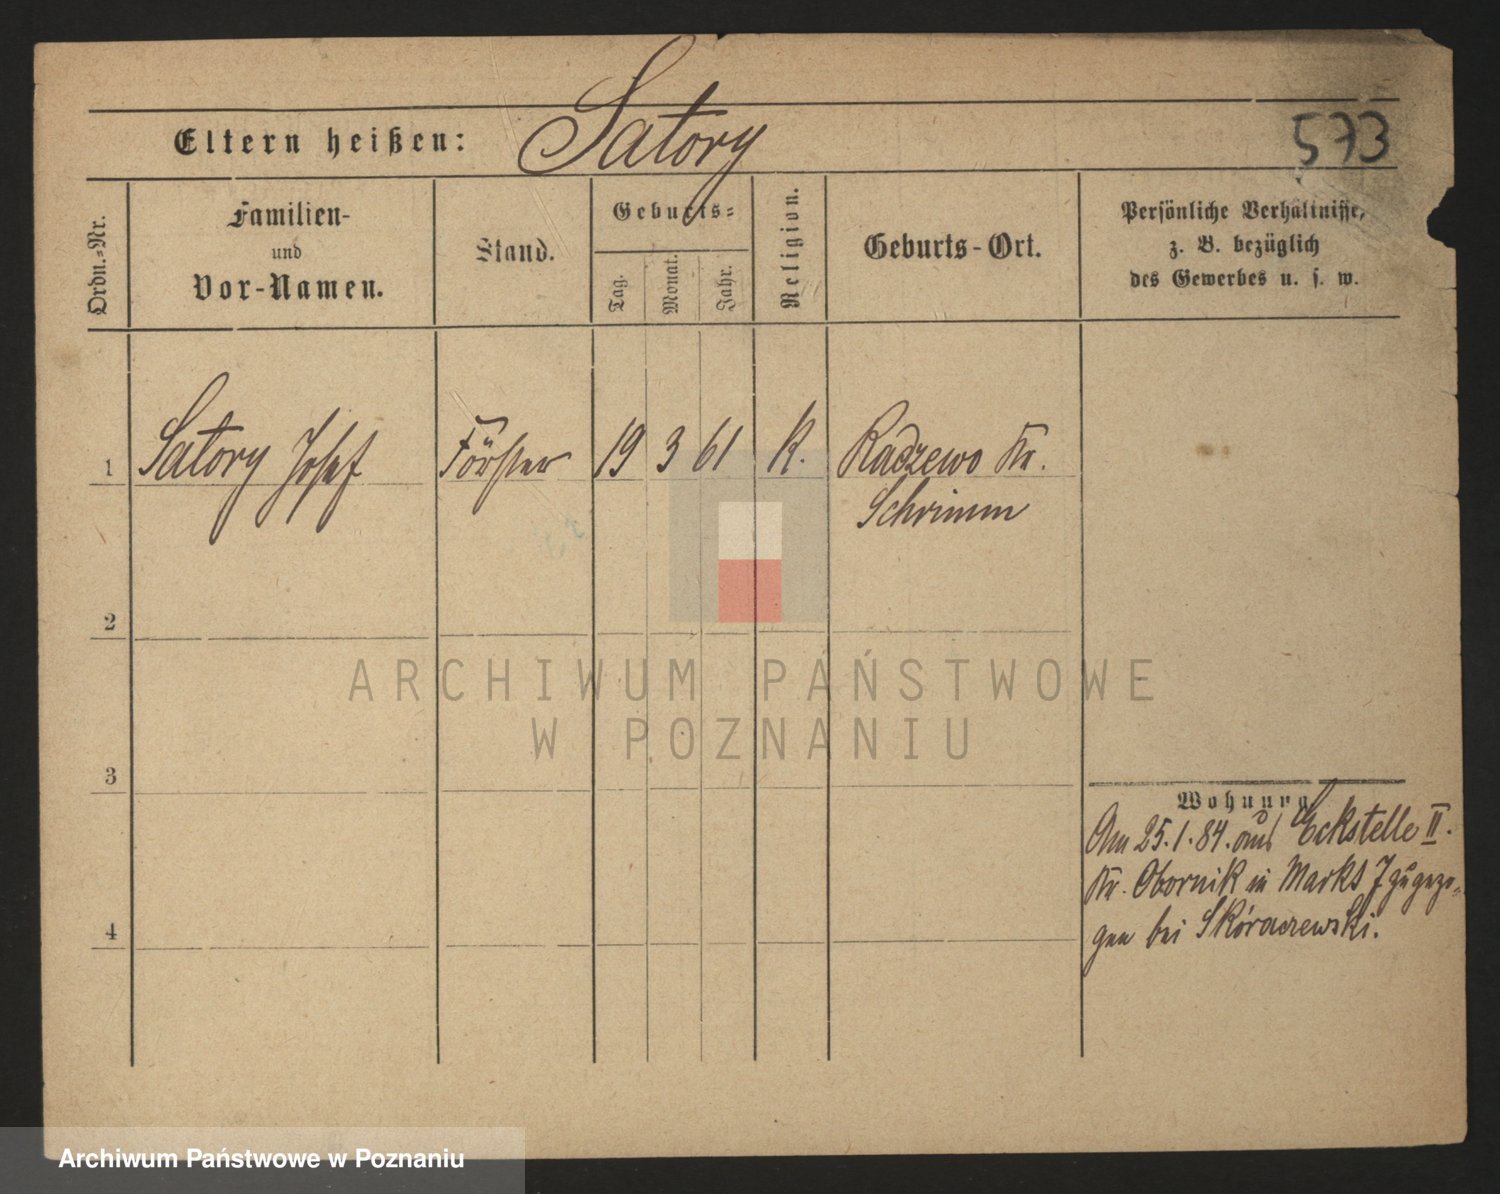 573
Eltern heißen: Satory
Ordn.-Nr.
Familien-
und
Vor-Namen.
Stand.
Geburts-
Tag.
Monat.
Jahr.
Religion.
Geburts-Ort.
Persönliche Verhältnisse,
z. B. bezüglich
des Gewerbes u. s. w.
1 Satory Josef Förster 19 3 61 K. Radzewo Kr.
Schrimm
2
3
4
Wohnung
Am 25.1.84. aus Eckstelle II.
Kr. Obornik in Markt 7 zugezo-
gen bei Skóraczewski.
ARCHIWUM PAŃSTWOWE
W POZNANIU
Archiwum Państwowe w Poznaniu